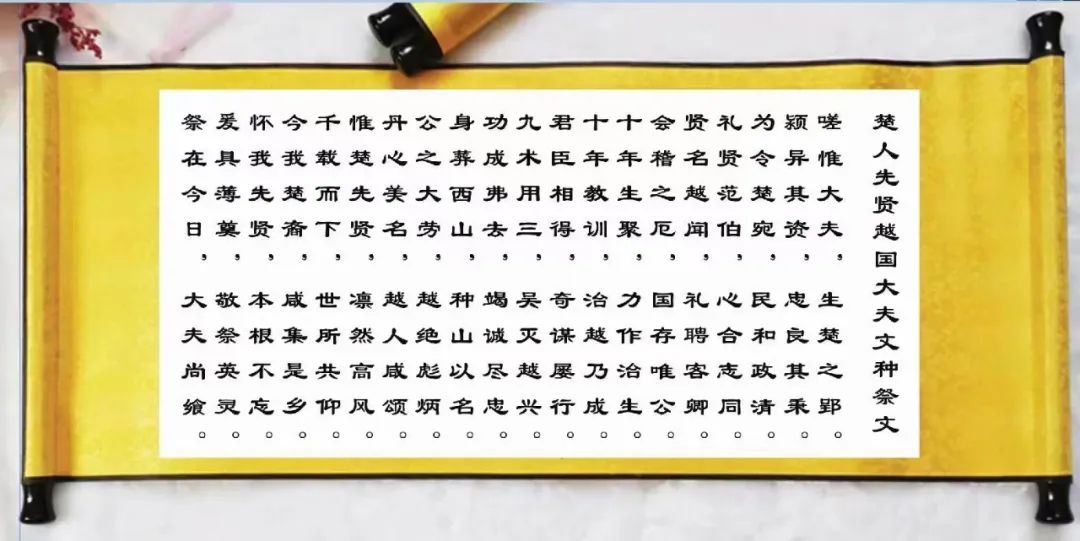 楚人先贤越国大夫文种祭文
嗟惟大夫，生楚之郢。
颖异其资，忠良其秉。
为令楚宛，民和政清。
礼贤范伯，心合志同。
贤名越闻，礼聘客卿。
会稽之厄，国存唯公。
十年生聚，力作治生。
十年教训，治越乃成。
君臣相得，奇谋屡行。
九术用三，吴灭越兴。
功成弗去，竭诚尽忠。
身葬西山，种山以名。
公之大劳，越绝彪炳。
丹心美名，越人咸颂。
惟楚先贤，凛然高风。
千载而下，世所共仰。
今我楚裔，咸集是乡。
怀我先贤，本根不忘。
爰具薄奠，敬祭英灵。
祭在今日，大夫尚飨。